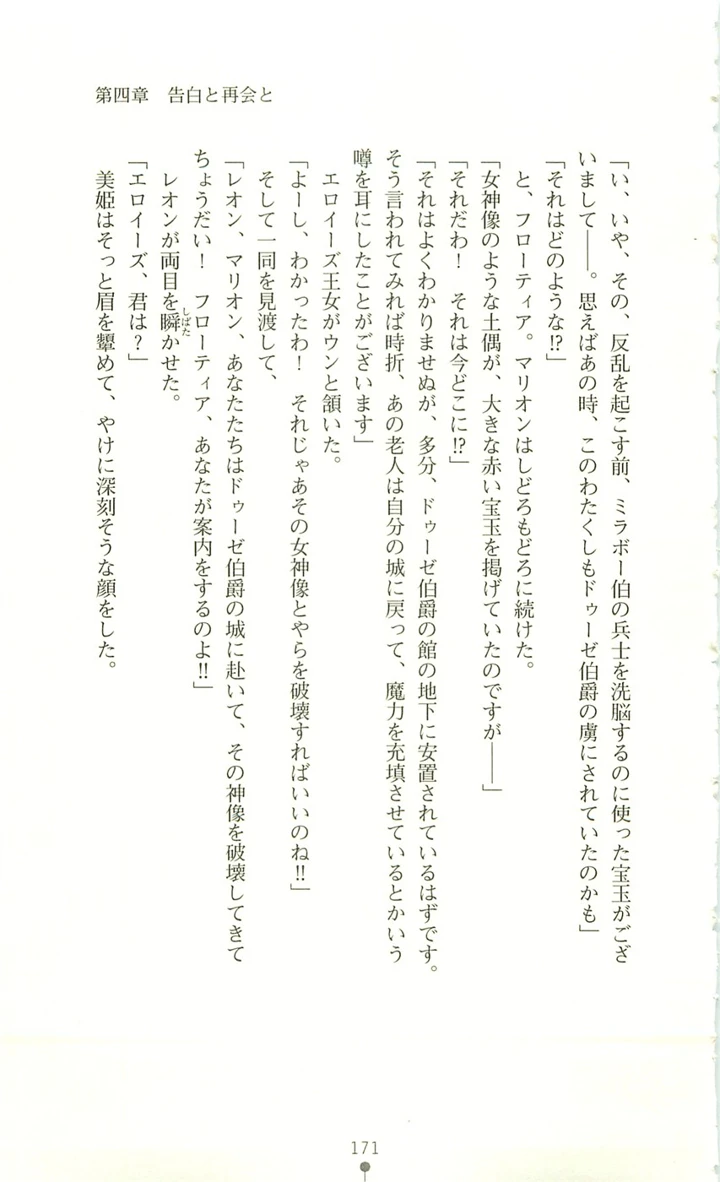 第四章　告白と再会と
「い、いや、その、反乱を起こす前、ミラボー伯の兵士を洗脳するのに使った宝玉がござ
いまして――。思えばあの時、このわたくしもドゥーゼ伯爵の虜にされていたのかも」
「それはどのような!?」
　と、フローティア。マリオンはしどろもどろに続けた。
「女神像のような土偶が、大きな赤い宝玉を掲げていたのですが――」
「それだわ！　それは今どこに!?」
「それはよくわかりませぬが、多分、ドゥーゼ伯爵の館の地下に安置されているはずです。
そう言われてみれば時折、あの老人は自分の城に戻って、魔力を充填させているとかいう
噂を耳にしたことがございます」
　エロイーズ王女がウンと頷いた。
「よーし、わかったわ！　それじゃあその女神像とやらを破壊すればいいのね!!」
　そして一同を見渡して、
「レオン、マリオン、あなたたちはドゥーゼ伯爵の城に赴いて、その神像を破壊してきて
ちょうだい！　フローティア、あなたが案内をするのよ!!」
　レオンが両目を瞬かせた。
しばた
「エロイーズ、君は？」
　美姫はそっと眉を顰めて、やけに深刻そうな顔をした。
171